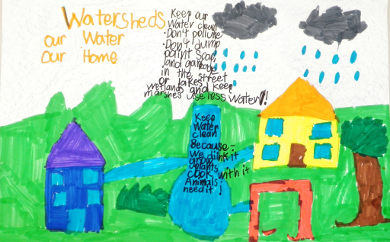 Watersheds
our Water
Our Home
Keep our
Water clean
Don't pollute
Don't dump
paint, soap,
and garbage
in the street
or lakes
wetlands and keep
marshes use less water!!
Keep
Water
clean
Because-
We drink it
grow
plants
cook with it
Animals
need it!